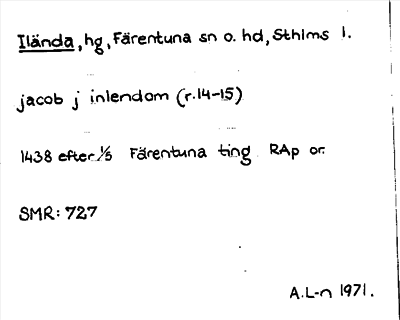 Ilända, hg, Färentuna sn o. hd, Sthlms l.
jacob j inlendom (r. 14-15)
1438 efter 1/5 Färentuna ting RAp or.
SMR: 727
A.L-n 1971.